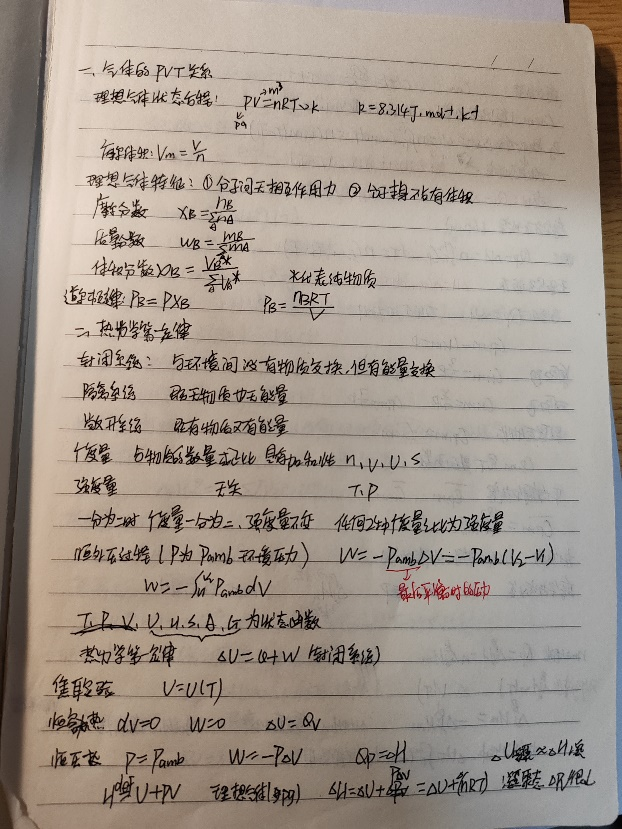 一、气体的PVT关系
理想气体状态方程: PV=nRT→K R=8.314J·mol-1·K-1
m³
Pa
摩尔体积: Vm=V/n
理想气体特征: ①分子间无相互作用力 ②分子本身不占有体积
摩尔分数 XB=nB/∑nA
质量分数 WB=mB/∑mA
体积分数 φB=VB*/∑VA* *代表纯物质
道尔顿定律: PB=PXB PB=nBRT/V
二、热力学第一定律
封闭系统: 与环境间没有物质交换,但有能量交换
隔离系统 既无物质也无能量
敞开系统 既有物质又有能量
广度量 与物质的数量成正比 具有加和性 n,V,U,S
强度量 无关 T,P
一分为二时 广度量一分为二、强度量不变 任何2种广度量之比为强度量
恒外压过程(P为Pamb环境压力) W=-PambΔV=-Pamb(V2-V1)
最后平衡时的压力
W=-∫V1V2 PambdV
T、P、V、U、H、S、A、G为状态函数
热力学第一定律 ΔU=Q+W (封闭系统)
焦耳实验 U=U(T)
恒容热 dV=0 W=0 ΔU=QV
恒压热 P=Pamb W=-PΔV Qp=ΔH
H def U+PV 理想气体 ΔH=ΔU+ΔPV=ΔU+Δ(nRT)